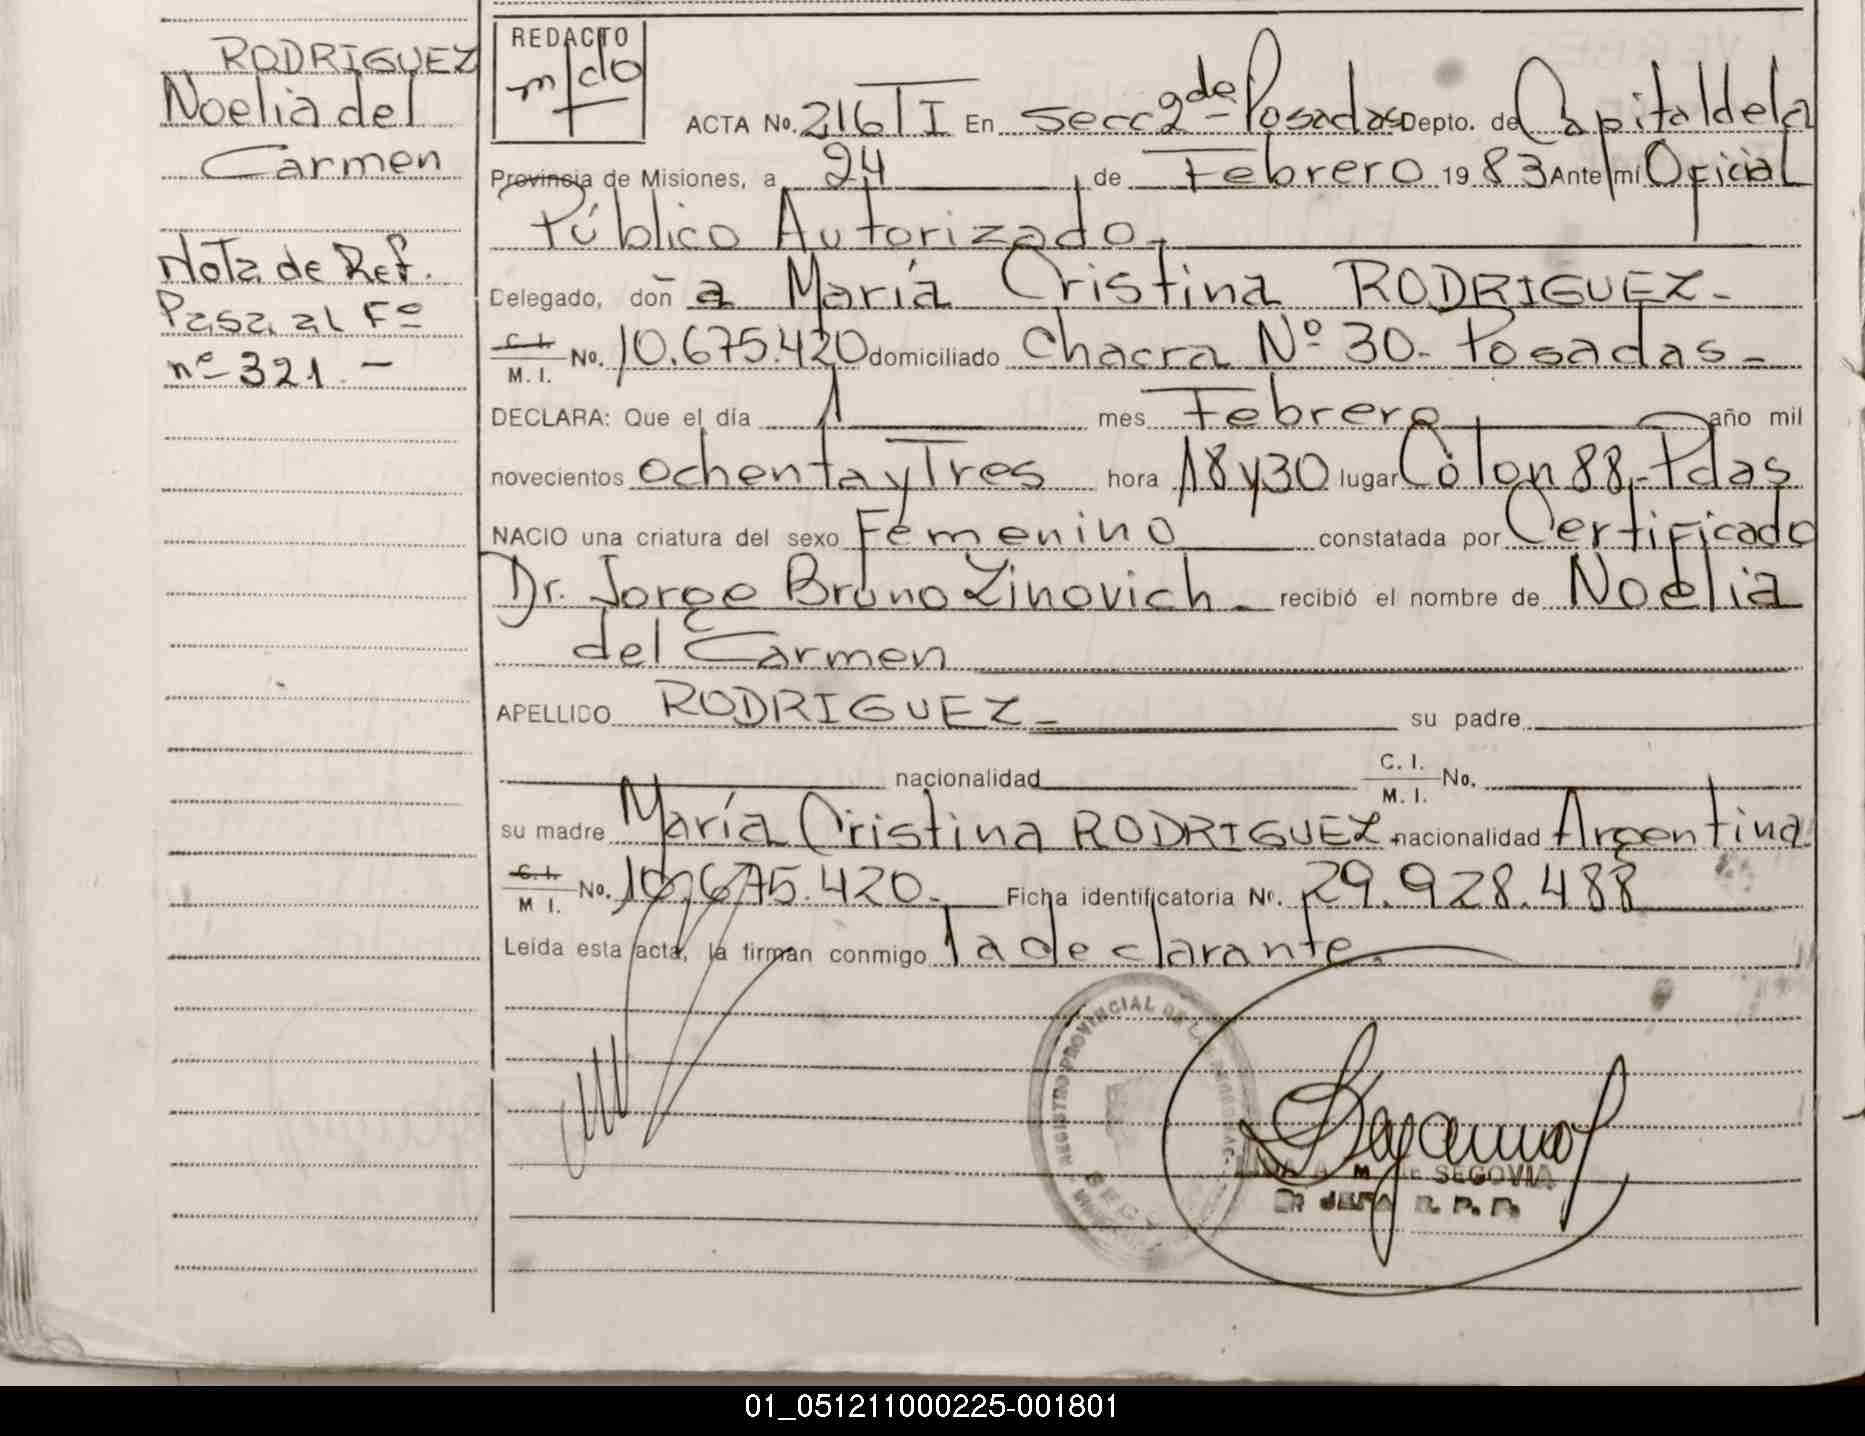 RODRIGUEZ
Noelia del
Carmen
Nota de Ref.
Pasa al Fº
nº 321 -
REDACTO
ACTA No. 216 T I En secc 2ª de Posadas Depto. de Capital de la
Provincia de Misiones, a 24 de Febrero 1983 Ante mí Oficial
Público Autorizado.
Delegado, don a María Cristina RODRIGUEZ -
C. I.
M. I. No. 10.675.420 domiciliado Chacra Nº 30 - Posadas -
DECLARA: Que el día 1 mes Febrero año mil
novecientos ochenta y Tres hora 18 y 30 lugar Colon 88 - Pdas
NACIO una criatura del sexo Femenino constatada por Certificado
Dr. Jorge Bruno Zinovich - recibió el nombre de Noelia
del Carmen
APELLIDO RODRIGUEZ - su padre
nacionalidad C. I.
M. I. No.
su madre María Cristina RODRIGUEZ nacionalidad Argentina
C. I.
M I. No. 10.675.420 - Ficha identificatoria Nº. 29.928.488
Leída esta acta, la firman conmigo la declarante.
REGISTRO PROVINCIAL DE LAS PERSONAS
DE SEGOVIA
JEFA R. P. P.
01_051211000225-001801